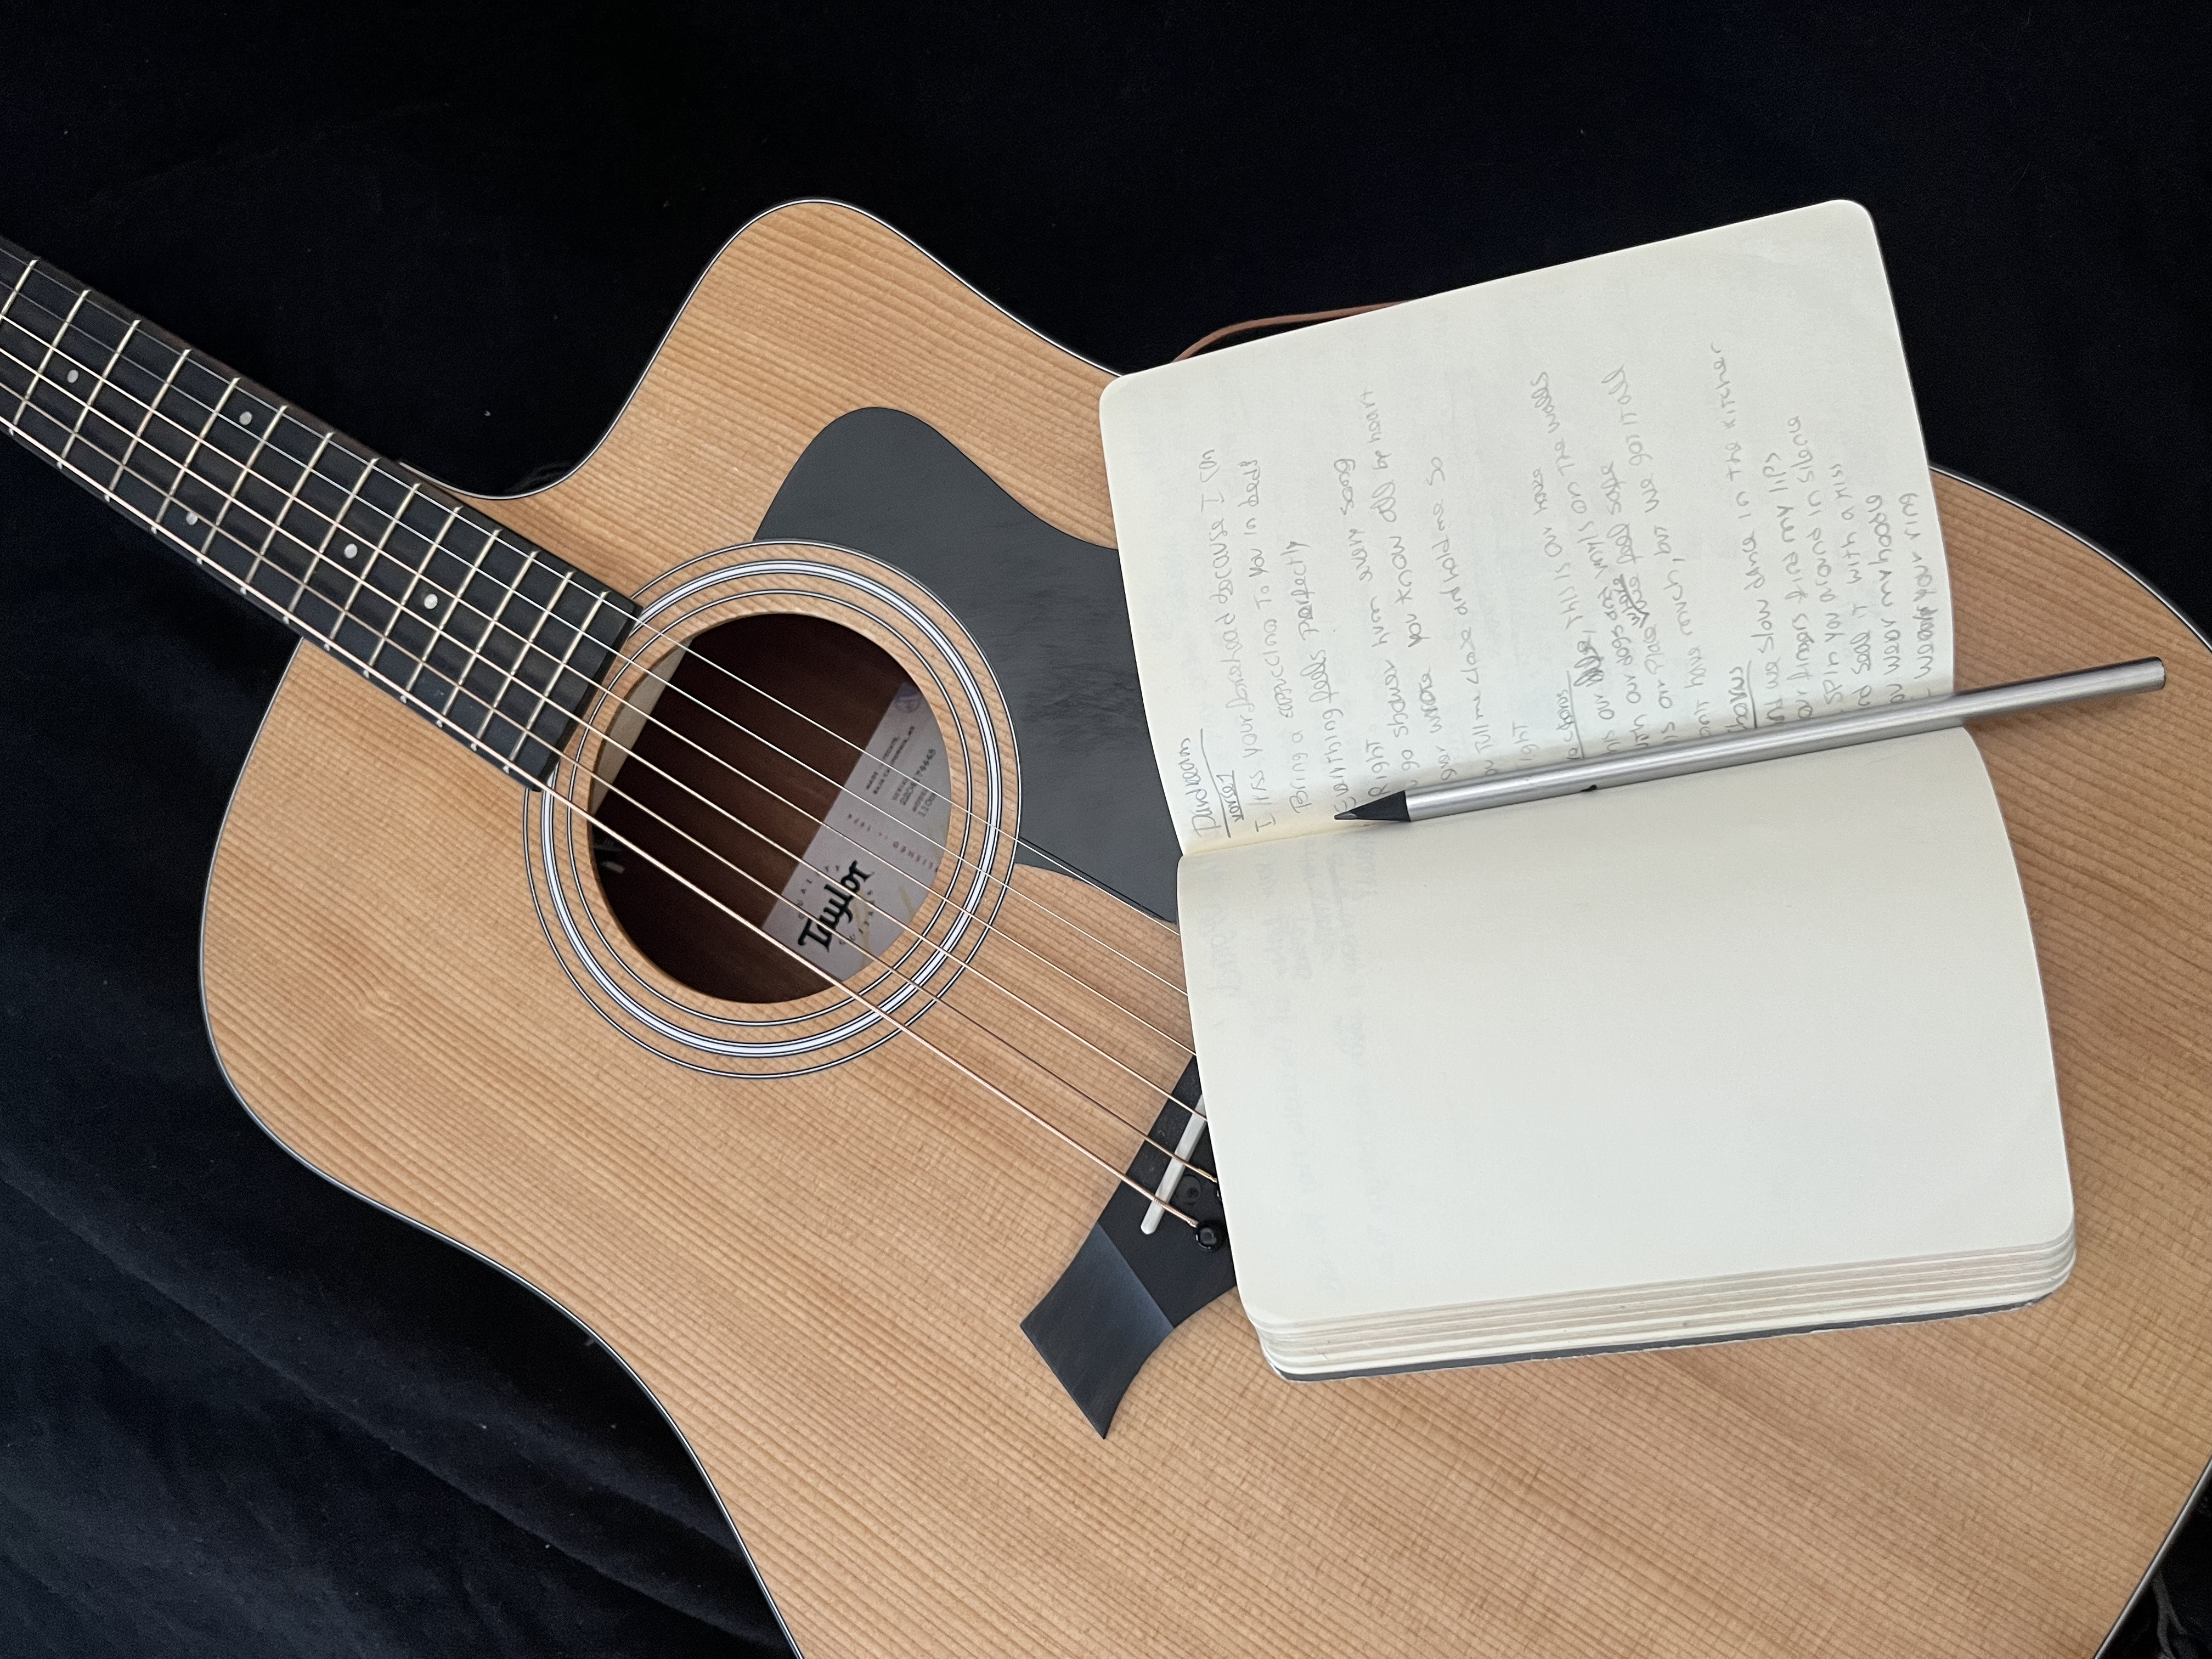 QUALITY
Taylor
GUITARS
MADE IN TECATE,
BAJA CALIFORNIA, MX
SERIAL
MODEL
in 1974
Daydream
verse 1
I kiss your forehead because I can
Bring a cappuccino to you in bed
Everything feels Perfectly
Right
go shower hum every song
ever wrote you know all by heart
Pull me close and hold me so
ight
chorus
his our life, this is our house
with our dogs and vinyls on the walls
is our Place where we feel safe
on't have much, but we got it all
Chorus
nd we slow dance in the kitchen
our fingers find my lips
spin you around in silence
nd seal it with a kiss
ou wear my hoodie
I wear your ring